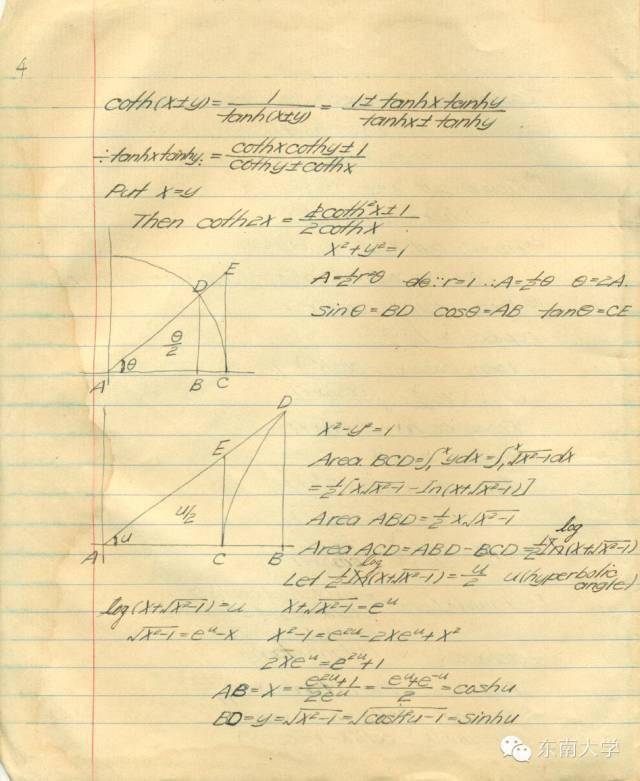 4
coth(x±y) = 1/tanh(x±y) = (1 ± tanhx tanhy)/(tanhx ± tanhy)
÷ tanhx tanhy: = (cothx cothy ± 1)/(cothy ± cothx)
Put x=y
Then coth2x = (coth²x ± 1)/(2cothx)
x²+y²=1
A=½r²θ ∵ r=1 ∴ A=½θ θ=2A.
sinθ=BD cosθ=AB tanθ=CE
E
D
θ/2
θ
A B C
D
E
u/2
u
A C B
x²-y²=1
Area BCD=∫₁ˣydx=∫₁ˣ√(x²-1)dx
=½[x√(x²-1) - ln(x+√(x²-1))]
Area ABD=½x√(x²-1)
Area ACD=ABD-BCD=½log(x+√(x²-1))
Let ½log(x+√(x²-1))=u/2 u(hyperbolic angle)
log(x+√(x²-1))=u x+√(x²-1)=eᵘ
√(x²-1)=eᵘ-x x²-1=e²ᵘ-2xeᵘ+x²
2xeᵘ=e²ᵘ+1
AB=x=(e²ᵘ+1)/(2eᵘ)=(eᵘ+e⁻ᵘ)/2=coshu
BD=y=√(x²-1)=√(cosh²u-1)=sinhu
东南大学